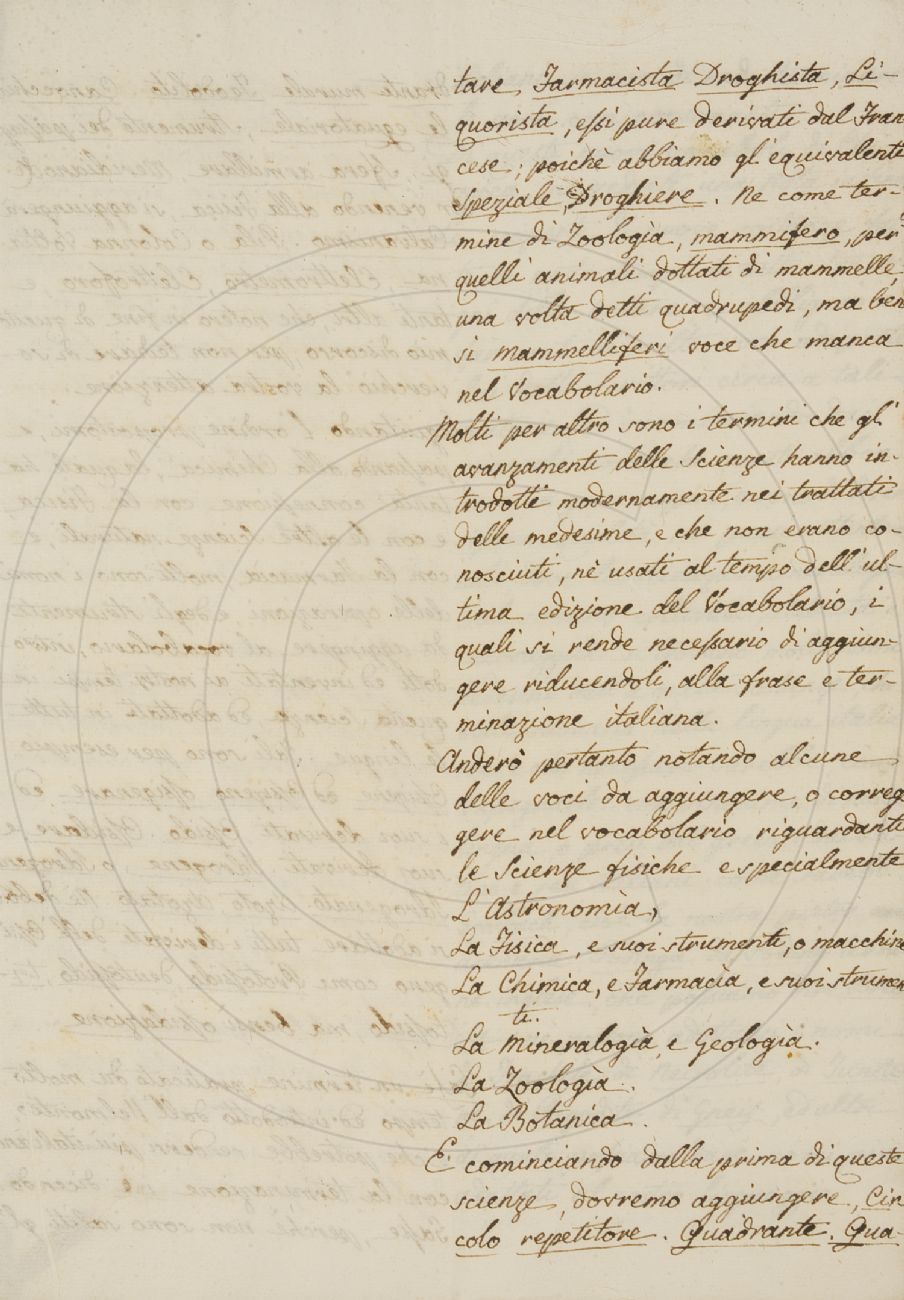 tare, Farmacista Droghista, Li-
quorista, essi pure derivati dal Fran
cese; poichè abbiamo gl'equivalenti
Speziale, Droghiere. Ne come ter-
mine di Zoologia, mammifero, per
quelli animali dottati di mammelle,
una volta detti quadrupedi, ma ben
si mammelliferi voce che manca
nel Vocabolario.
Molti per altro sono i termini che gl'
avanzamenti delle Scienze hanno in-
trodotti modernamente nei trattati
delle medesime, e che non erano co-
nosciuti, nè usati al tempo dell'ul-
tima edizione del Vocabolario, i
quali si rende necessario di aggiun-
gere riducendoli, alla frase e ter-
minazione italiana.
Anderò pertanto notando alcune
delle voci da aggiungere, o correg
gere nel vocabolario riguardanti
le Scienze fisiche e specialmente
L'Astronomìa,
La Fisica, e suoi strumenti, o macchine
La Chimica, e Farmacìa, e suoi strumen
ti.
La Mineralogìa, e Geologìa.
La Zoologìa.
La Botanica.
E cominciando dalla prima di queste
scienze, dovremo aggiungere, Cir
colo repetitore. Quadrante. Qua-